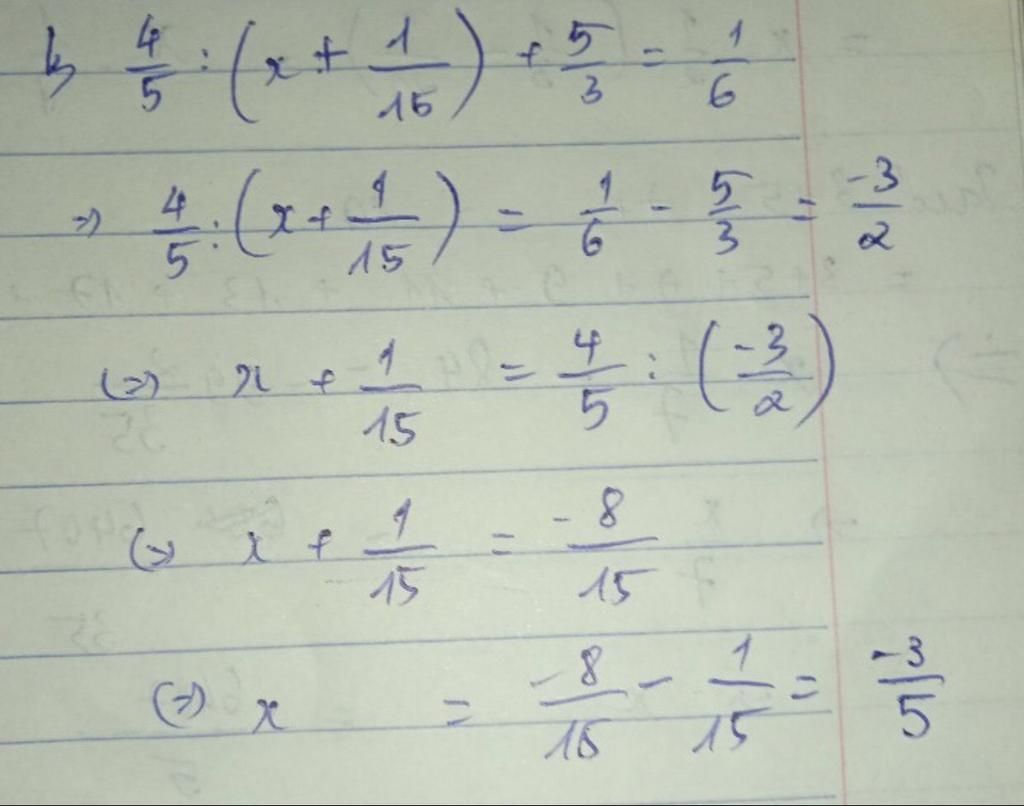 b, 4/5 : (x + 1/15) + 5/3 = 1/6
=> 4/5 : (x + 1/15) = 1/6 - 5/3 = -3/2
(=> x + 1/15 = 4/5 : (-3/2)
(=> x + 1/15 = -8/15
(=> x = -8/15 - 1/15 = -3/5